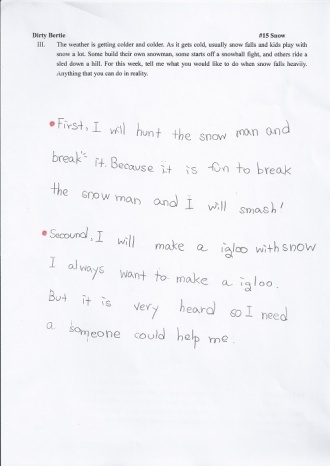 Dirty Bertie #15 Snow
III. The weather is getting colder and colder. As it gets cold, usually snow falls and kids play with
snow a lot. Some build their own snowman, some starts off a snowball fight, and others ride a
sled down a hill. For this week, tell me what you would like to do when snow falls heavily.
Anything that you can do in reality.
First, I will hunt the snow man and
break's it. Because it is fun to break
the snow man and I will smash!
Secound, I will make a igloo with snow
I always want to make a igloo.
But it is very heard so I need
a someone could help me.